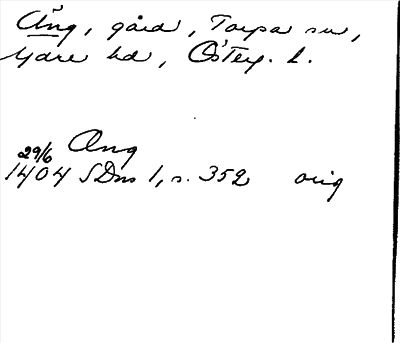 Äng, gård, Torpa sn,
Ydre hd, Österg. l.
Ang
29/6
1404 SDns 1, s. 352 orig